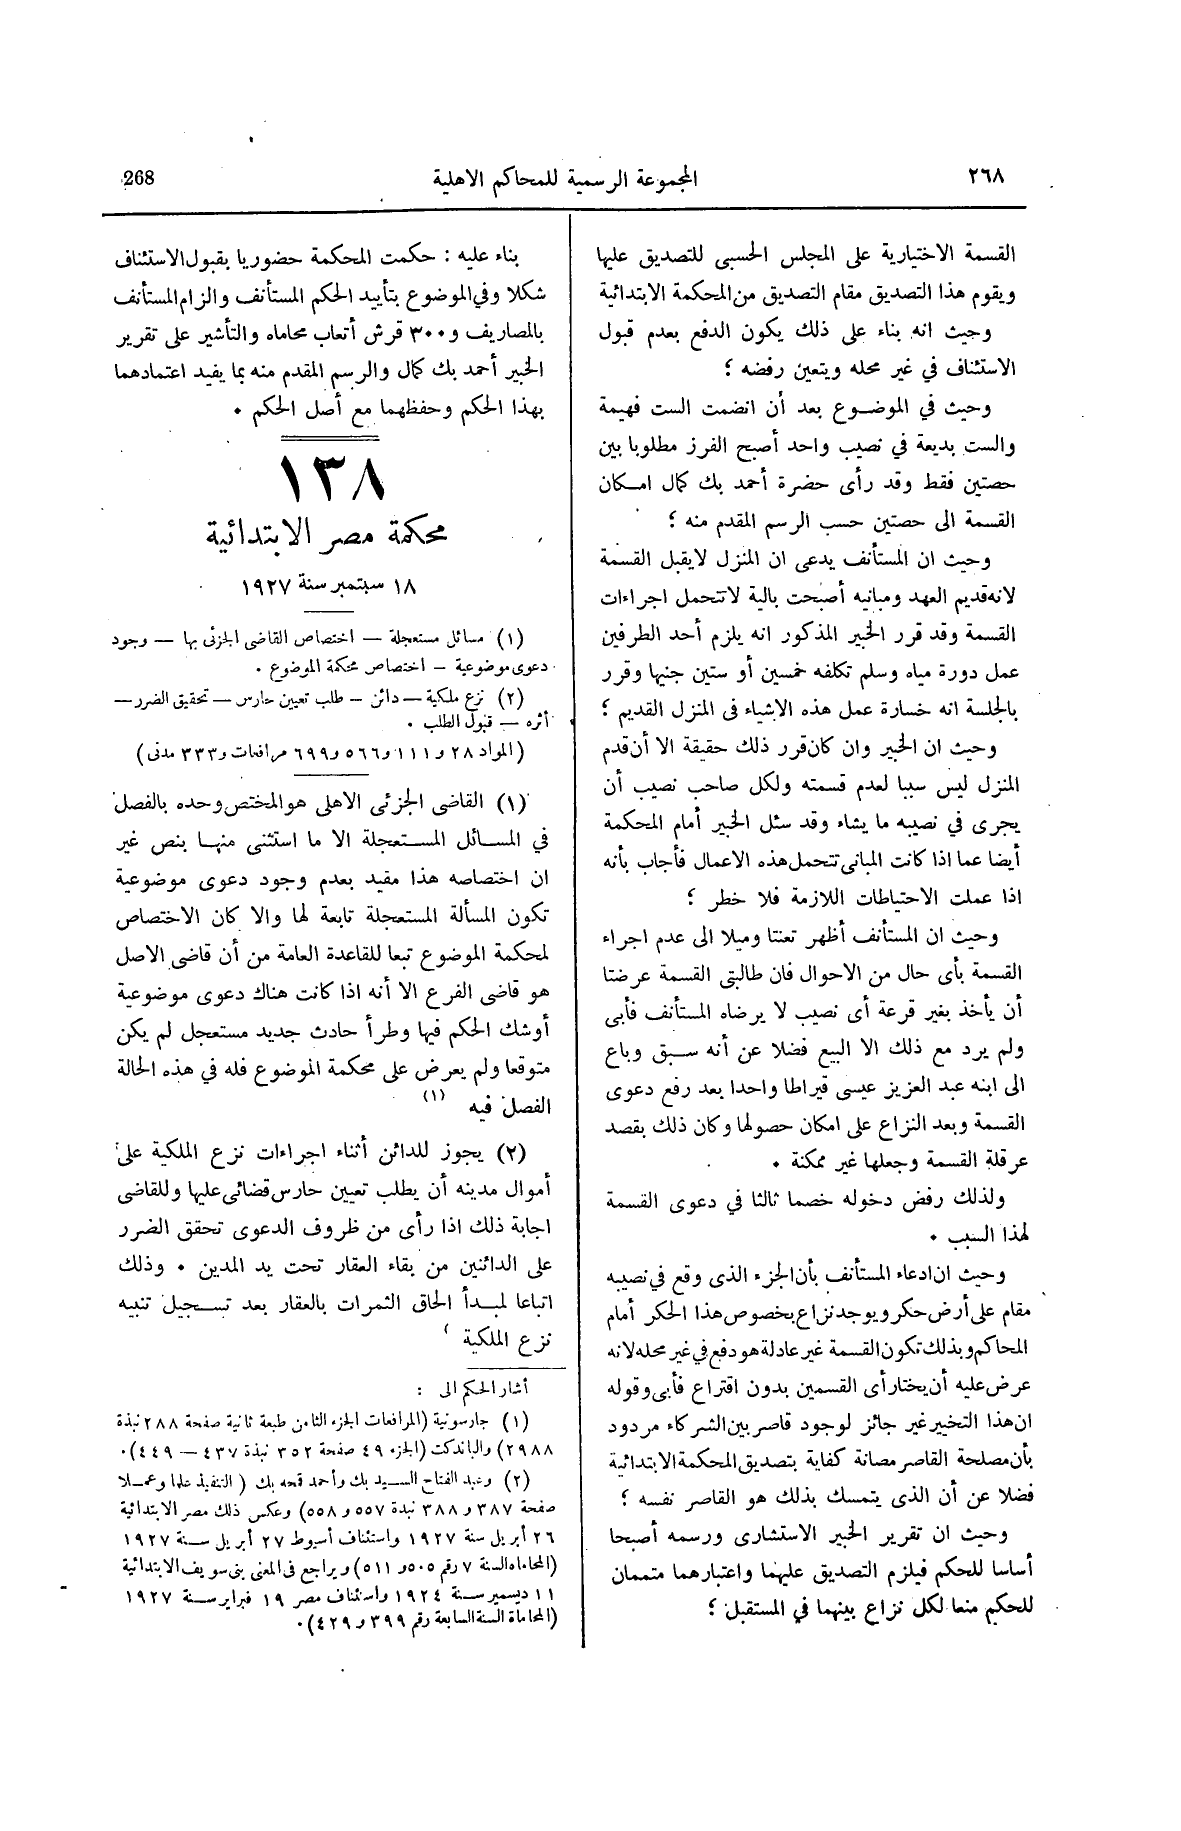 ٢٦٨
المجموعة الرسمية للمحاكم الاهلية
268
القسمة الاختيارية على المجلس الحسبى للتصديق عليها
ويقوم هذا التصديق مقام التصديق من المحكمة الابتدائية
وحيث انه بناء على ذلك يكون الدفع بعدم قبول
الاستئناف في غير محله ويتعين رفضه ؛
وحيث في الموضوع بعد أن انضمت الست فهيمة
والست بديعة في نصيب واحد أصبح الفرز مطلوبا بين
حصتين فقط وقد رأى حضرة أحمد بك كمال امكان
القسمة الى حصتين حسب الرسم المقدم منه ؛
وحيث ان المستأنف يدعى ان المنزل لايقبل القسمة
لانه قديم العهد ومبانيه أصبحت بالية لاتتحمل اجراءات
القسمة وقد قرر الخبير المذكور انه يلزم أحد الطرفين
عمل دورة مياه وسلم تكلفه خمسين أو ستين جنيها وقرر
بالجلسة انه خسارة عمل هذه الاشياء فى المنزل القديم ؛
وحيث ان الخبير وان كان قرر ذلك حقيقة الا أن قدم
المنزل ليس سببا لعدم قسمته ولكل صاحب نصيب أن
يجرى في نصيبه ما يشاء وقد سئل الخبير أمام المحكمة
أيضا عما اذا كانت المبانى تتحمل هذه الاعمال فأجاب بأنه
اذا عملت الاحتياطات اللازمة فلا خطر ؛
وحيث ان المستأنف أظهر تعنتا وميلا الى عدم اجراء
القسمة بأى حال من الاحوال فان طالبتى القسمة عرضتا
أن يأخذ بغير قرعة أى نصيب لا يرضاه المستأنف فأبى
ولم يرد مع ذلك الا البيع فضلا عن أنه سبق وباع
الى ابنه عبد العزيز عيسى قيراطا واحدا بعد رفع دعوى
القسمة وبعد النزاع على امكان حصولها وكان ذلك بقصد
عرقلة القسمة وجعلها غير ممكنة .
ولذلك رفض دخوله خصما ثالثا في دعوى القسمة
لهذا السبب .
وحيث ان ادعاء المستأنف بأن الجزء الذى وقع في نصيبه
مقام على أرض حكر ويوجد نزاع بخصوص هذا الحكر أمام
المحاكم وبذلك تكون القسمة غير عادلة هو دفع في غير محله لانه
عرض عليه أن يختار أى القسمين بدون اقتراع فأبى وقوله
ان هذا التخيير غير جائز لوجود قاصر بين الشركاء مردود
بأن مصلحة القاصر مصانة كفاية بتصديق المحكمة الابتدائية
فضلا عن أن الذى يتمسك بذلك هو القاصر نفسه ؛
وحيث ان تقرير الخبير الاستشارى ورسمه أصبحا
أساسا للحكم فيلزم التصديق عليهما واعتبارهما متممان
للحكم منعا لكل نزاع بينهما في المستقبل ؛
بناء عليه : حكمت المحكمة حضوريا بقبول الاستئناف
شكلا وفي الموضوع بتأييد الحكم المستأنف والزام المستأنف
بالمصاريف و ٣٠٠ قرش أتعاب محاماه والتأشير على تقرير
الخبير أحمد بك كمال والرسم المقدم منه بما يفيد اعتمادهما
بهذا الحكم وحفظهما مع أصل الحكم .
١٣٨
محكمة مصر الابتدائية
١٨ سبتمبر سنة ١٩٢٧
(١) مسائل مستعجلة — اختصاص القاضى الجزئى بها — وجود
دعوى موضوعية — اختصاص محكمة الموضوع .
(٢) نزع ملكية — دائن — طلب تعيين حارس — تحقيق الضرر —
أثره — قبول الطلب .
(المواد ٢٨ و ١١١ و ٥٦٦ و ٦٩٩ مرافعات و ٣٣٣ مدنى)
(١) القاضى الجزئى الاهلى هو المختص وحده بالفصل
في المسائل المستعجلة الا ما استثنى منها بنص غير
ان اختصاصه هذا مقيد بعدم وجود دعوى موضوعية
تكون المسألة المستعجلة تابعة لها والا كان الاختصاص
لمحكمة الموضوع تبعا للقاعدة العامة من أن قاضى الاصل
هو قاضى الفرع الا أنه اذا كانت هناك دعوى موضوعية
أوشك الحكم فيها وطرأ حادث جديد مستعجل لم يكن
متوقعا ولم يعرض على محكمة الموضوع فله في هذه الحالة
الفصل فيه (١)
(٢) يجوز للدائن أثناء اجراءات نزع الملكية على
أموال مدينه أن يطلب تعيين حارس قضائى عليها وللقاضى
اجابة ذلك اذا رأى من ظروف الدعوى تحقق الضرر
على الدائنين من بقاء العقار تحت يد المدين . وذلك
اتباعا لمبدأ الحاق الثمرات بالعقار بعد تسجيل تنبيه
نزع الملكية
أشار الحكم الى :
(١) جارسونية (المرافعات الجزء الثامن طبعة ثانية صفحة ٢٨٨ نبذة
٢٩٨٨) والباندكت (الجزء ٤٩ صفحة ٣٥٢ نبذة ٤٣٧ — ٤٤٩).
(٢) وعبد الفتاح السيد بك وأحمد قمحه بك (التنفيذ علما وعملا
صفحة ٣٨٧ و ٣٨٨ نبذة ٥٥٧ و ٥٥٨) وعكس ذلك مصر الابتدائية
٢٦ أبريل سنة ١٩٢٧ واستئناف أسيوط ٢٧ أبريل سنة ١٩٢٧
(المحاماه السنة ٧ رقم ٥٠٥ و ٥١١) ويراجع فى المعنى بنى سويف الابتدائية
١١ ديسمبر سنة ١٩٢٤ واستئناف مصر ١٩ فبراير سنة ١٩٢٧
(المحاماة السنة السابعة رقم ٣٩٩ و ٤٢٩).